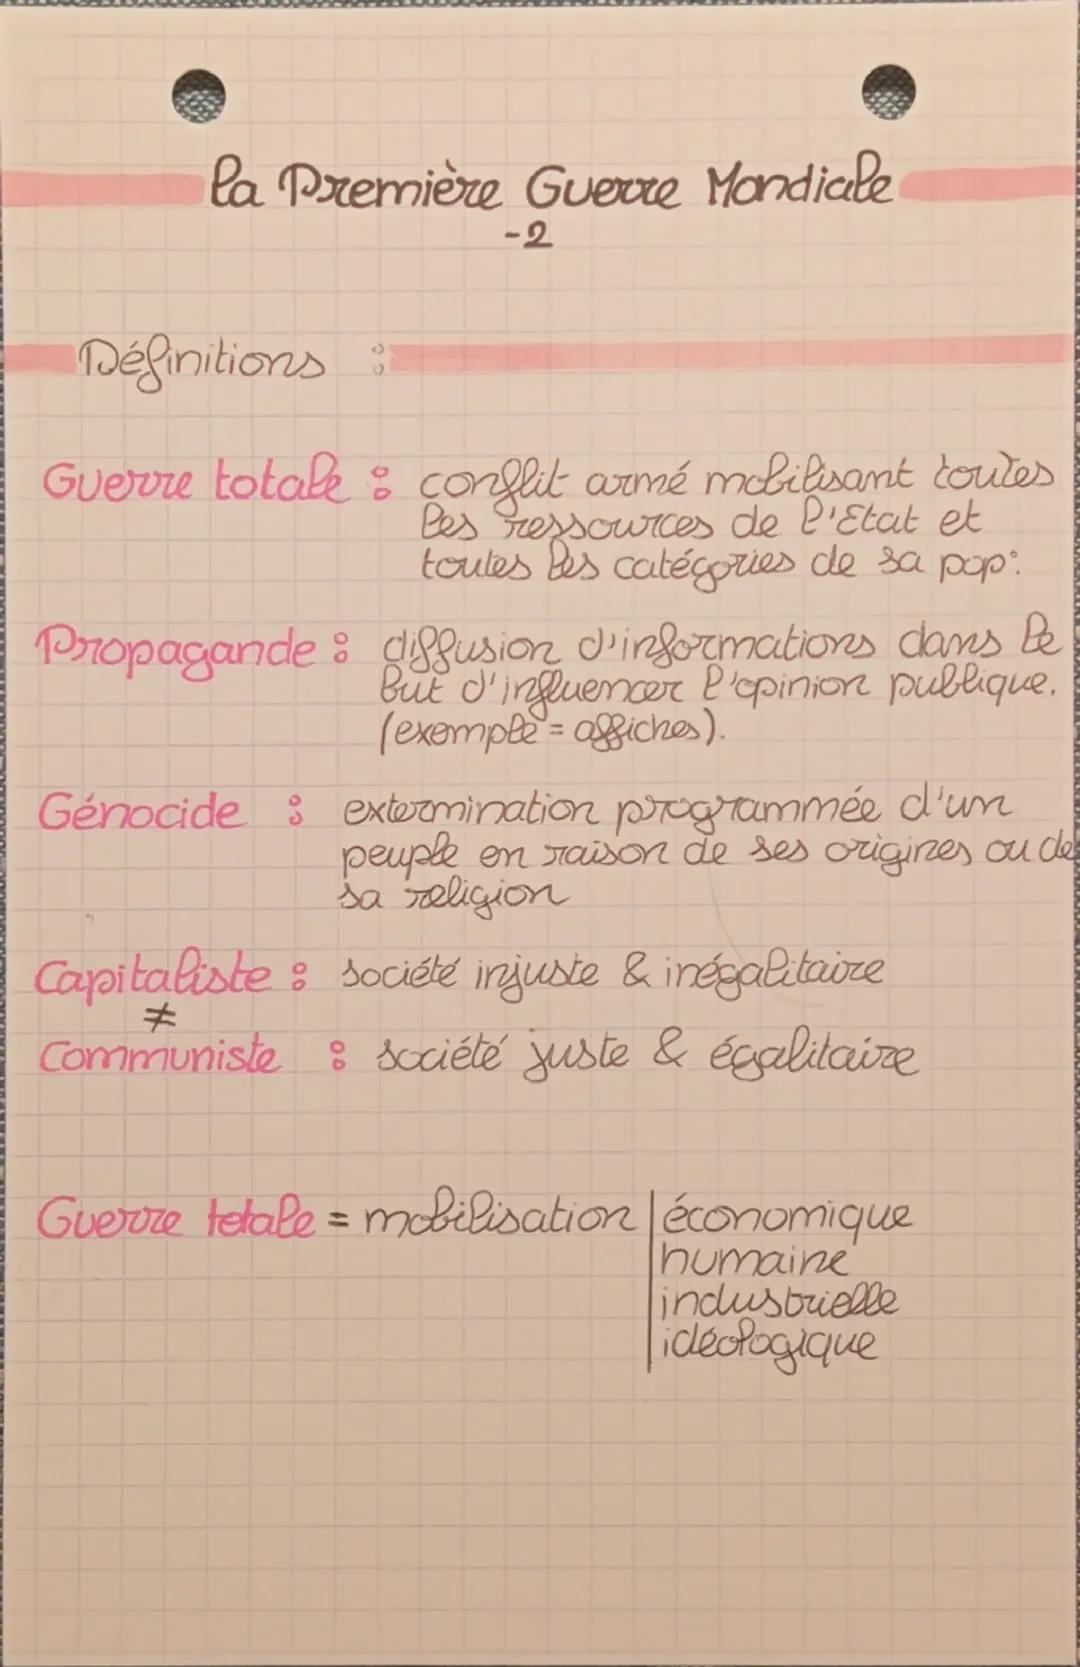 la Première Guerre Mondiale
-2
Définitions :
Guerre totale : conflit armé mobilisant toutes
les ressources de l'Etat et
toutes les catégories de sa pop:
Propagande : diffusion d'informations dans le
but d'influencer l'opinion publique.
(exemple = affiches).
Génocide : extermination programmée d'un
peuple en raison de ses origines ou de
sa religion
Capitaliste : société injuste & inégalitaire
≠
Communiste : société juste & égalitaire
Guerre totale = mobilisation | économique
humaine
industrielle
idéologique